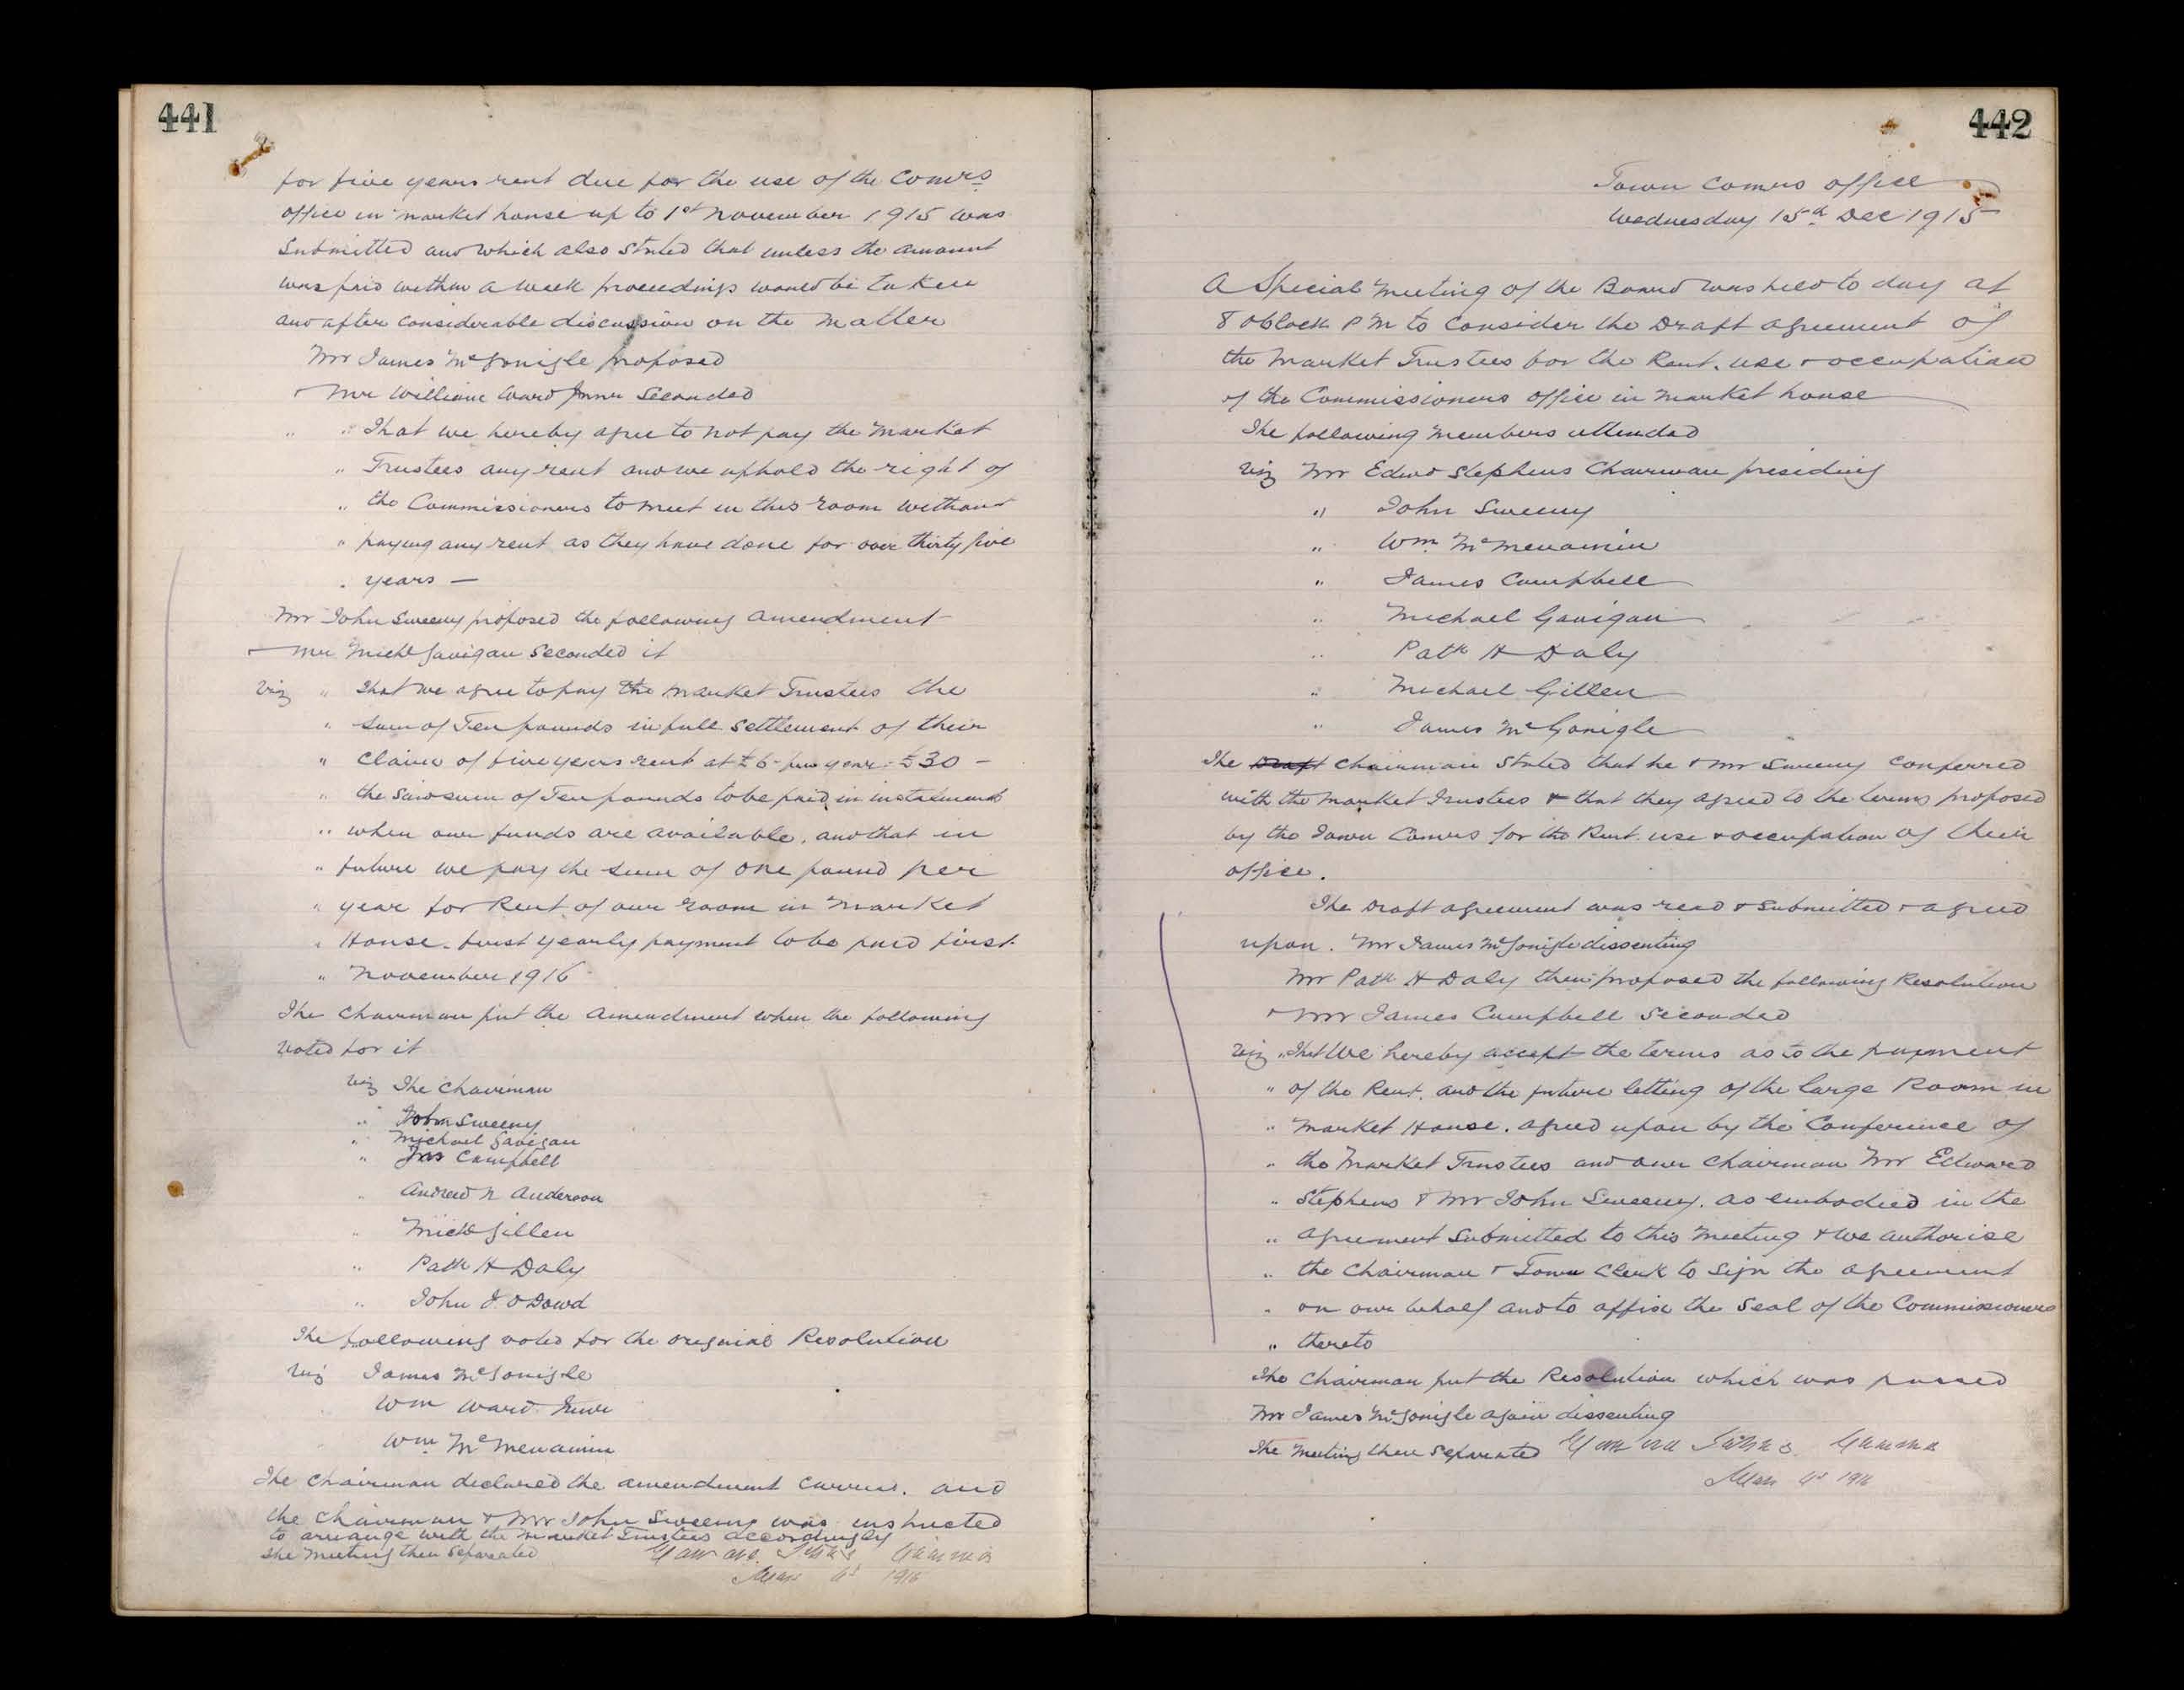 441
for five years rent due for the use of the Comrs
office in market house up to 1st November 1915 was
Submitted and which also Stated that unless the amount
was paid within a week proceedings would be taken
and after considerable discussion on the matter
Mr James McGonigle proposed
+ Mr William Ward Junr Seconded
" That we hereby agree to not pay the Market
" Trustees any rent and we uphold the right of
" the Commissioners to meet in this room without
" paying any rent as they have done for over thirty five
" years —
Mr John Sweeny proposed the following amendment
+ Mr Michl Gavigan Seconded it
Viz " That we agree to pay the Market Trustees the
" sum of Ten pounds in full Settlement of their
" Claim of five years rent at £6 - per year = £30 -
" the said sum of Ten pounds to be paid in instalments
" when our funds are available. and that in
" future we pay the sum of one pound per
" year for Rent of our room in Market
" House. first yearly payment to be paid first
" November 1916
The Chairman put the Amendment when the following
Voted for it
Viz The Chairman
" John Sweeny
" Michael Gavigan
" Jas Campbell
" Andrew N Anderson
" Michl Gillen
" Patk H Daly
" John J. O Dowd
The following voted for the original Resolution
Viz James McGonigle
Wm Ward Junr
Wm McMenamin
The Chairman declared the amendment carried. and
the Chairman + Mr John Sweeny was instructed
to arrange with the Market Trustees accordingly
The Meeting then Separated
1916
442
Town Comrs office
Wednesday 15th Dec 1915
A Special Meeting of the Board was held to day at
8 oClock P M to Consider the Draft agreement of
the Market Trustees for the Rent. use + occupation
of the Commissioners office in Market house
The following Members attended
Viz Mr Edwd Stephens Chairman presiding
" John Sweeny
" Wm McMenamin
" James Campbell
" Michael Gavigan
" Patk H Daly
" Michael Gillen
" James McGonigle
The Draft Chairman Stated that he + Mr Sweeny conferred
with the Market Trustees + that they agreed to the terms proposed
by the Town Comrs for the Rent. use + occupation of their
office.
The Draft agreement was read + submitted + agreed
upon. Mr James McGonigle dissenting
Mr Patk H Daly then proposed the following Resolution
+ Mr James Campbell Seconded
Viz " That We hereby accept the terms as to the payment
" of the Rent. and the future letting of the large Room in
" Market House. agreed upon by the Conference of
" the Market Trustees and our Chairman Mr Edward
" Stephens + Mr John Sweeny. as embodied in the
" agreement Submitted to this Meeting + we authorise
" the Chairman + Town Clerk to Sign the agreement
" on our behalf and to affix the Seal of the Commissioners
" thereto
The Chairman put the Resolution which was passed
Mr James McGonigle again dissenting
The Meeting then Separated
1916